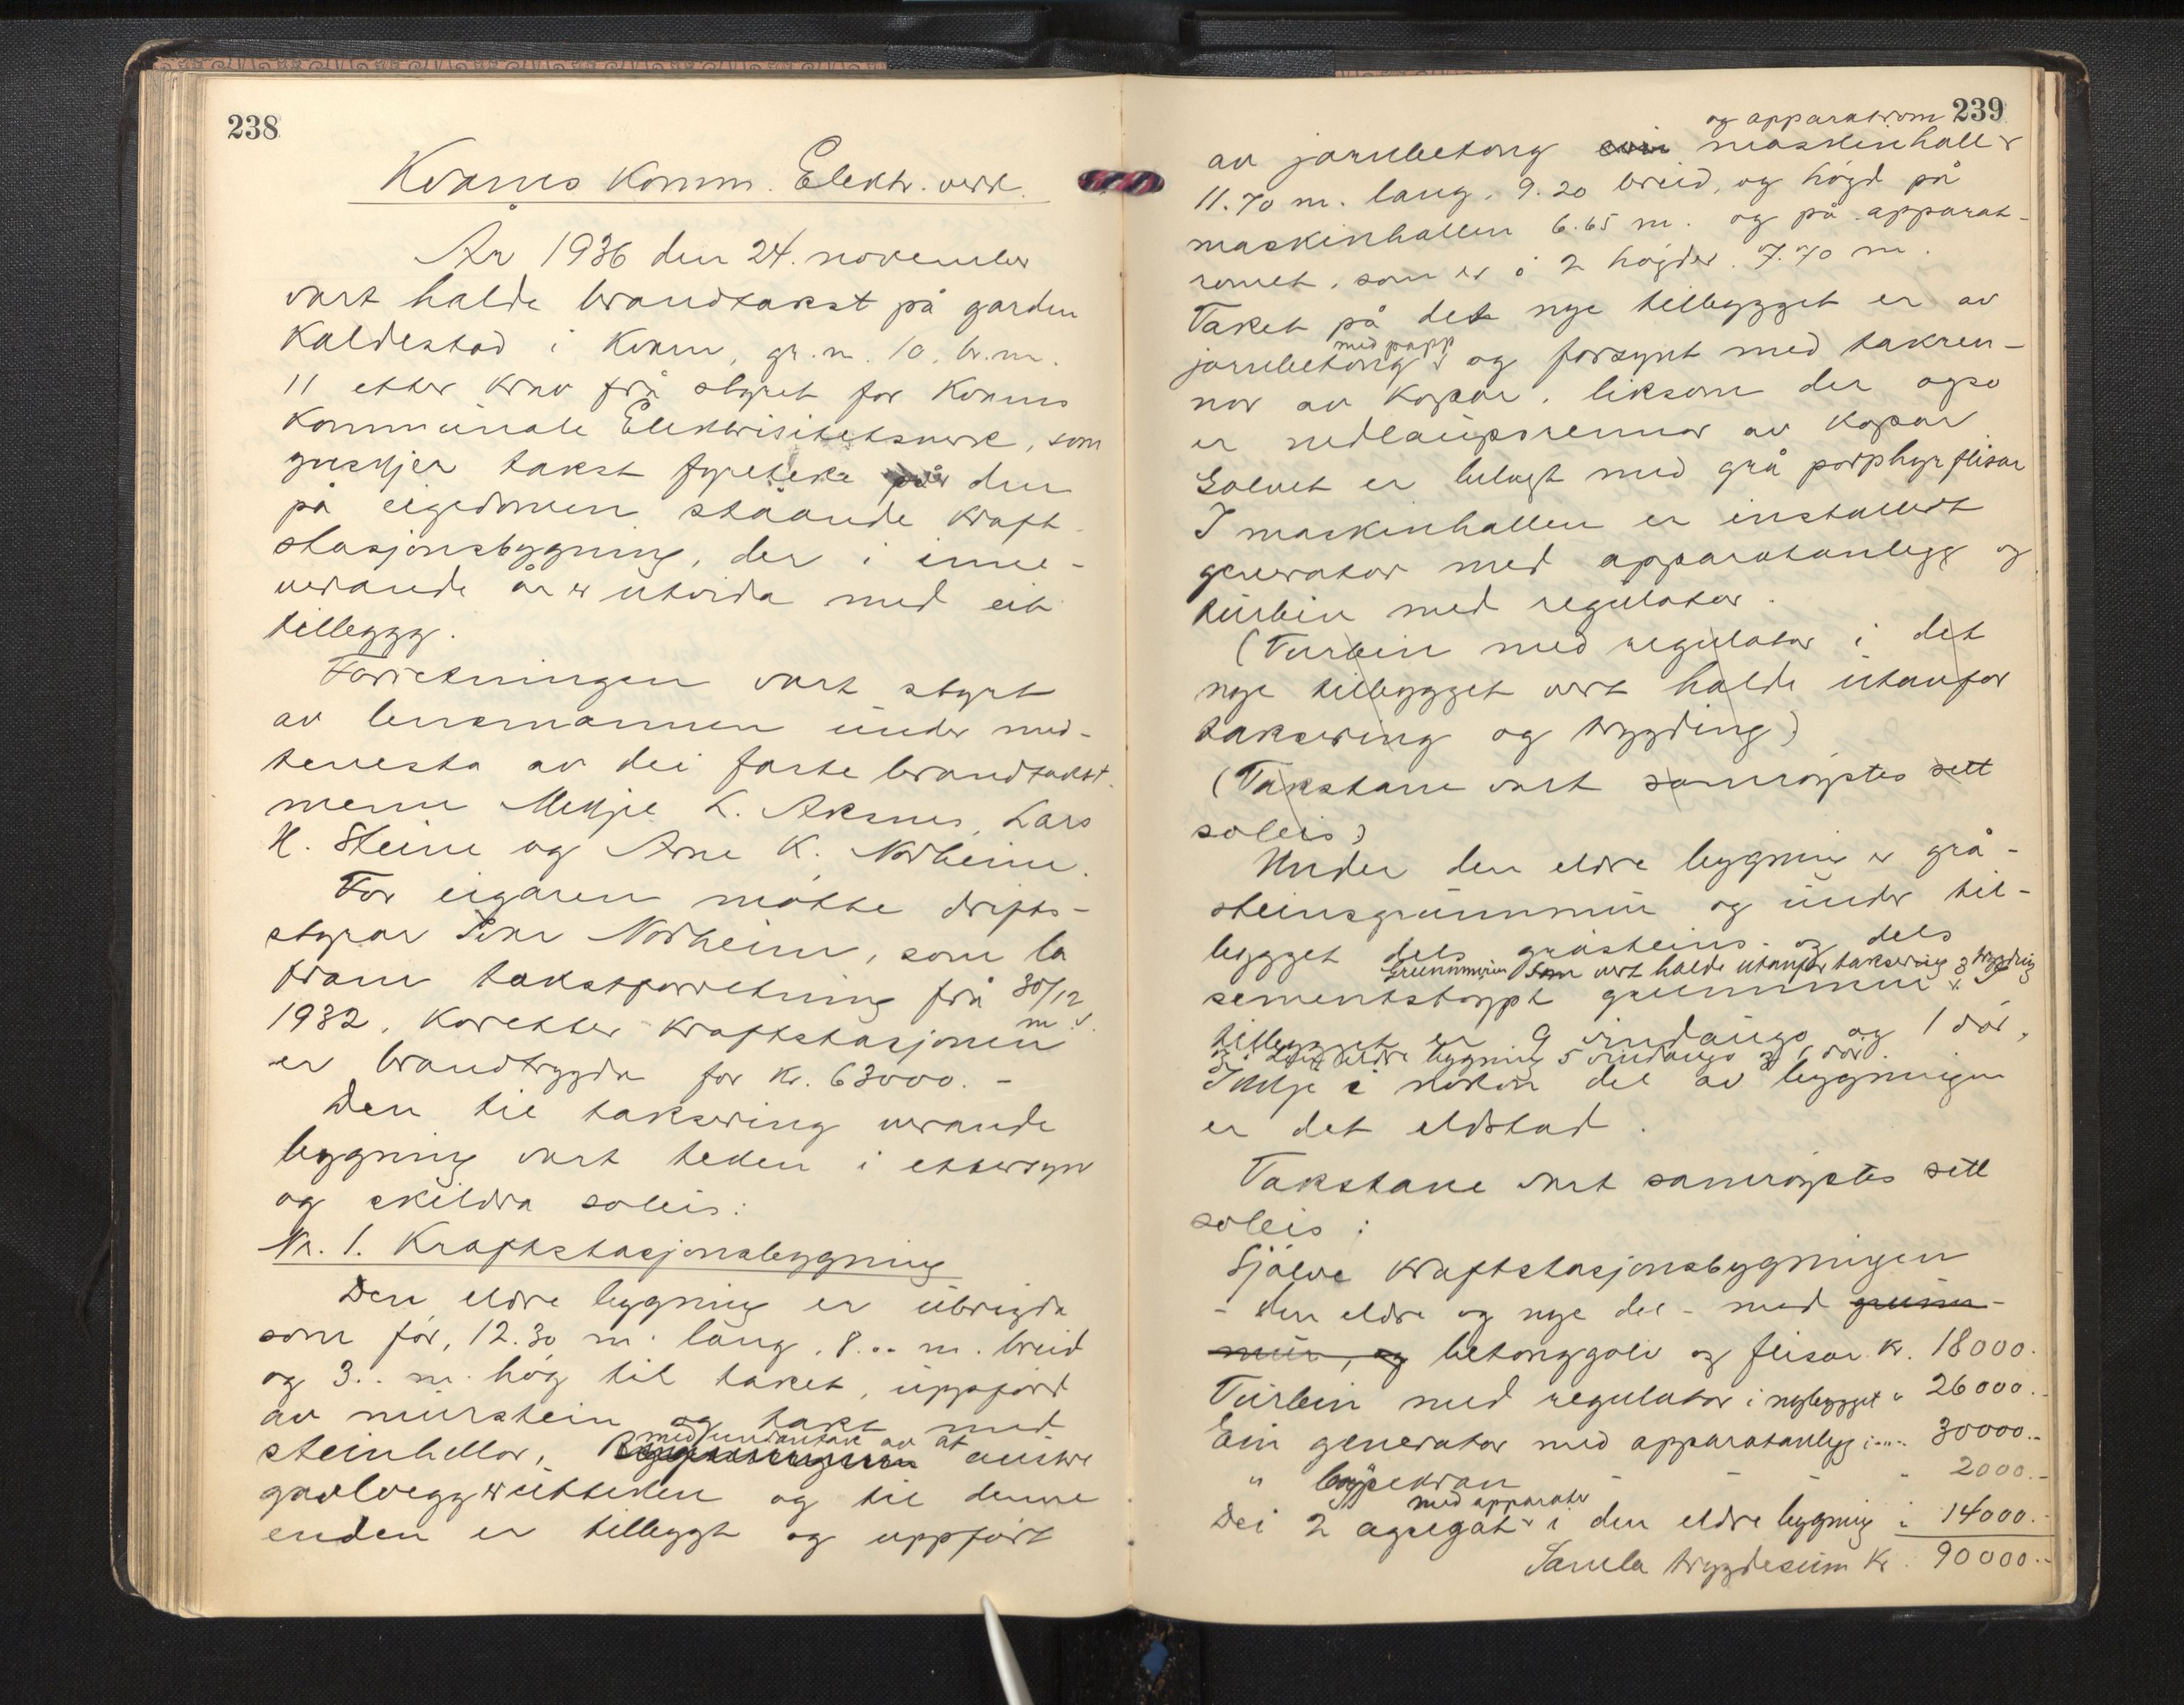 238
Kvams Komm. Elektr. verk.
År 1936 den 24. november
vart halde brandtakst på garden
Kaldestad i Kvam, gr. n. 10, br. nr.
11 etter krav frå styret for Kvams
Kommunale Elektrisitetsverk, som
ynskjer takst fyreteke på den
på eigedomen ståande kraft-
stasjonsbygning, der i inne-
verande år er utvida med eit
tillegg.
Forretningen vart styrt
av lensmannen under med-
tenesta av dei faste brandtakst-
menn Mikjel L. Aksnes, Lars
H. Steine og Arne K. Norheim.
For eigaren møtte drifts-
styrar Norheim, som la
fram takstforretning frå 30/12
1932, koretter kraftstasjonen m. v.
er brandtrygda for kr. 63000.-
Den til taksering verande
bygning vart teken i ettersyn
og skildra soleis:
Nr. 1. Kraftstasjonsbygning
Den eldre bygning er übrigda
som før, 12.30 m. lang, 8.00 m. breid
og 3.. m. høg til taket, uppførd
av murstein og takt med
steinhellor, med undantak av at austre
gavlvegg er utteken og til denne
enden er tilleggt og uppført
239
av jarnbetong maskinhall og apparatrom
11.70 m. lang, 9.20 breid, og högd på
maskinhallen 6.65 m. og på apparat-
romet, som er i 2 högder 7.70 m.
Taket på det nye tilbygget er av
jarnbetong med papp og forsynt med takren-
nor av kopar, liksom der ogso
er nedlaupsrennor av kopar
Golvet er belagt med grå porphyrflisar
I maskinhallen er installert
generator med apparatanlegg og
turbin med regulator.
(Turbin med regulator i det
nye tilbygget vert halde utanfor
taksering og trygding)
(Takstane vart samrøystes sett
soleis)
Under den eldre bygning er grå-
steinsgrunnmur og under til-
bygget dels gråsteins- og dels
sementstøypt grunnmur. Grunnmuren som vert halde utanfor taksering og trygding I
tilbygget er 9 vindaugo og 1 dør,
og i den eldre bygning 5 vindaugo og 1 dør.
Ikkje i nokon del av bygningen
er det eldstad.
Takstane vart samrøystes sett
soleis:
Sjølve kraftstasjonsbygningen
- den eldre og nye del - med grunn-
mur, og betonggolv og flisar kr. 18000.-
Turbin med regulator i nybygget " 26000.-
Ein generator med apparatanlegg i " 30000.-
" løpekran - - - " 2000.-
Dei 2 agregat med apparater i den eldre bygning : 14000.-
Samla trygdesum kr. 90000.-